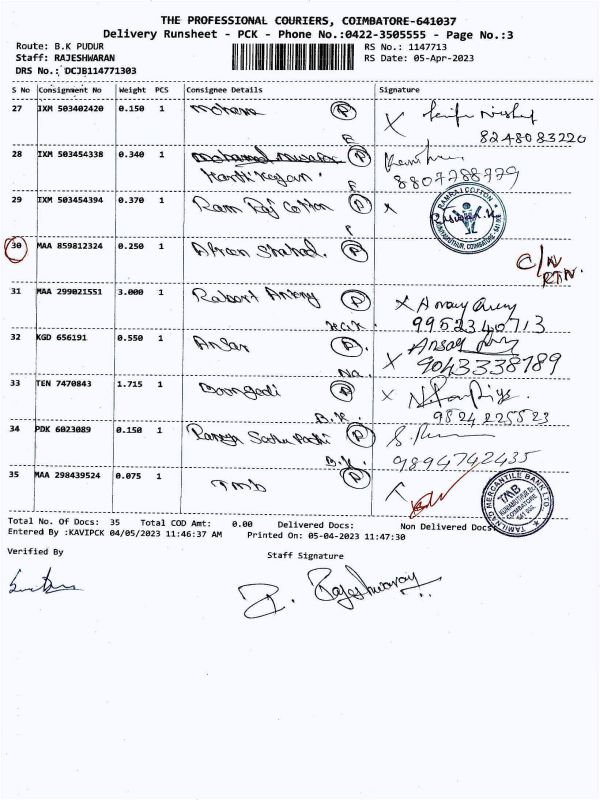 THE PROFESSIONAL COURIERS, COIMBATORE-641037
Delivery Runsheet - PCK - Phone No.:0422-3505555 - Page No.:3
Route: B.K PUDUR
Staff: RAJESHWARAN
DRS No.: DCJB114771303
RS No.: 1147713
RS Date: 05-Apr-2023
S No Consignment No Weight PCS Consignee Details Signature
27 IXM 503402420 0.150 1 Mohana P
8248083220
28 IXM 503454338 0.340 1 P
Karthikeyan.
8807788779
29 IXM 503454394 0.370 1 Ram Raj Cotton P X
RAMRAJ COTTON
30 MAA 859812324 0.250 1 P
C/N
RTN.
31 MAA 299021551 3.000 1 P X
9952340713
32 KGD 656191 0.550 1 Ansar P. Ansar
X 9043338789
33 TEN 7470843 1.715 1 P X
B.K. 9824225523
34 PDK 6023089 0.150 1 P
B.K. 9894742435
35 MAA 298439524 0.075 1 TMB P
TAMILNAD MERCANTILE BANK LTD.
TMB
COIMBATORE
Total No. Of Docs: 35 Total COD Amt: 0.00 Delivered Docs: Non Delivered Docs:
Entered By :KAVIPCK 04/05/2023 11:46:37 AM Printed On: 05-04-2023 11:47:30
Verified By Staff Signature
R. Rajeshwaran